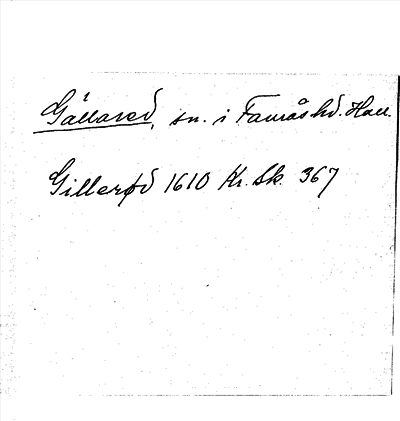 Gällared, sn. i Faurås hd. Hall.
Gillerød 1610 Kr. Sk. 367